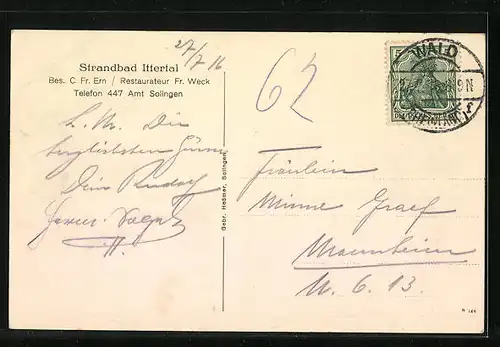 27/7 16
Strandbad Ittertal
Bes. C. Fr. Ern / Restaurateur Fr. Weck
Telefon 447 Amt Solingen
62
5
WALD
9N
(RHEINLAND)
L. M. Die
herzlichsten Grüsse
Dein Rudolf
Gebr. Hedmer, Solingen
Fräulein
Minne Graef
Mannheim
U. 6. 13.